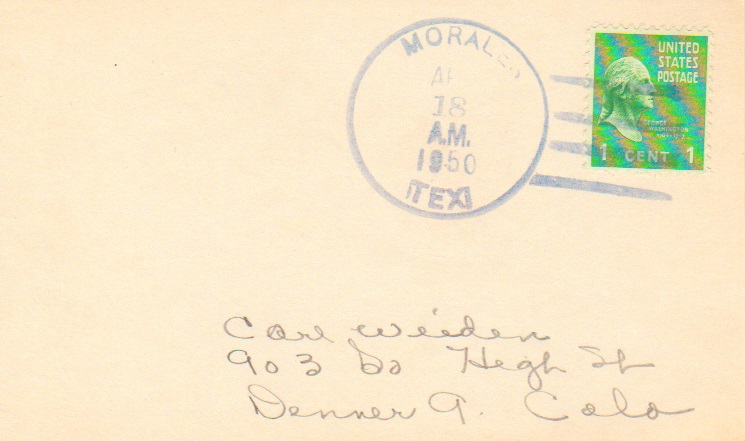 MORALES
AP
18
A.M.
1950
TEX
UNITED
STATES
POSTAGE
GEORGE
WASHINGTON
1 CENT 1
Carl Weiden
903 So High St
Denver 9. Colo